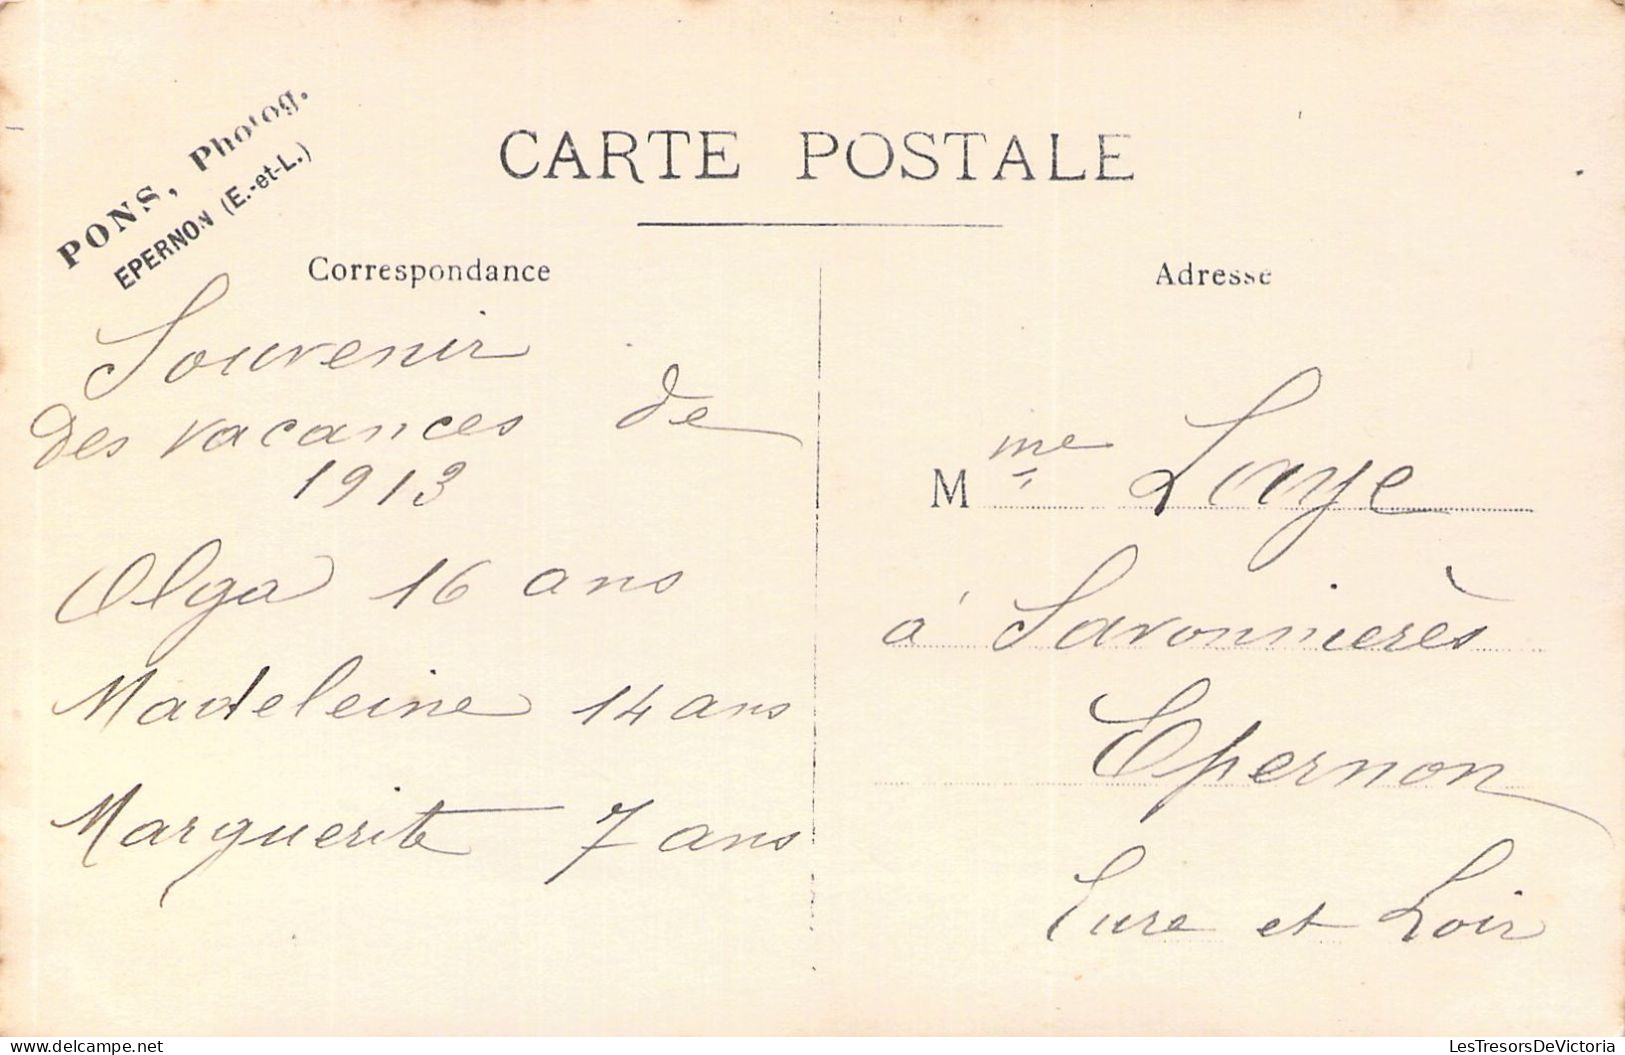 PONS, Photog.
EPERNON (E.-et-L.)
CARTE POSTALE
Correspondance
Souvenir
des vacances de
1913
Olga 16 ans
Madeleine 14 ans
Marguerite 7 ans
Adresse
Mme Laye
à Savonnierès
Epernon
Eure et Loir
LesTresorsDeVictoria
delcampe.net